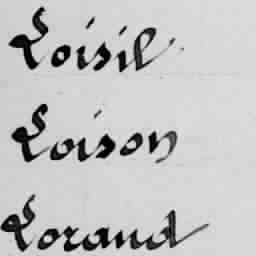 Loisil
Loison
Lorand